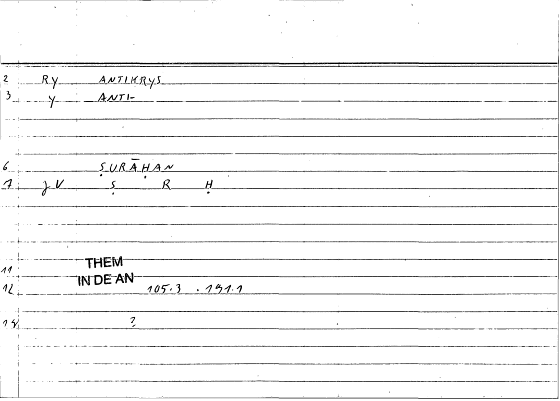 2 RY ANTIKRYS
3 y ANTI-
6 ṢURĀḤAN
7 γV Ṣ R Ḥ
11 THEM
IN DE AN
12 105.3 .151.1
14 ?